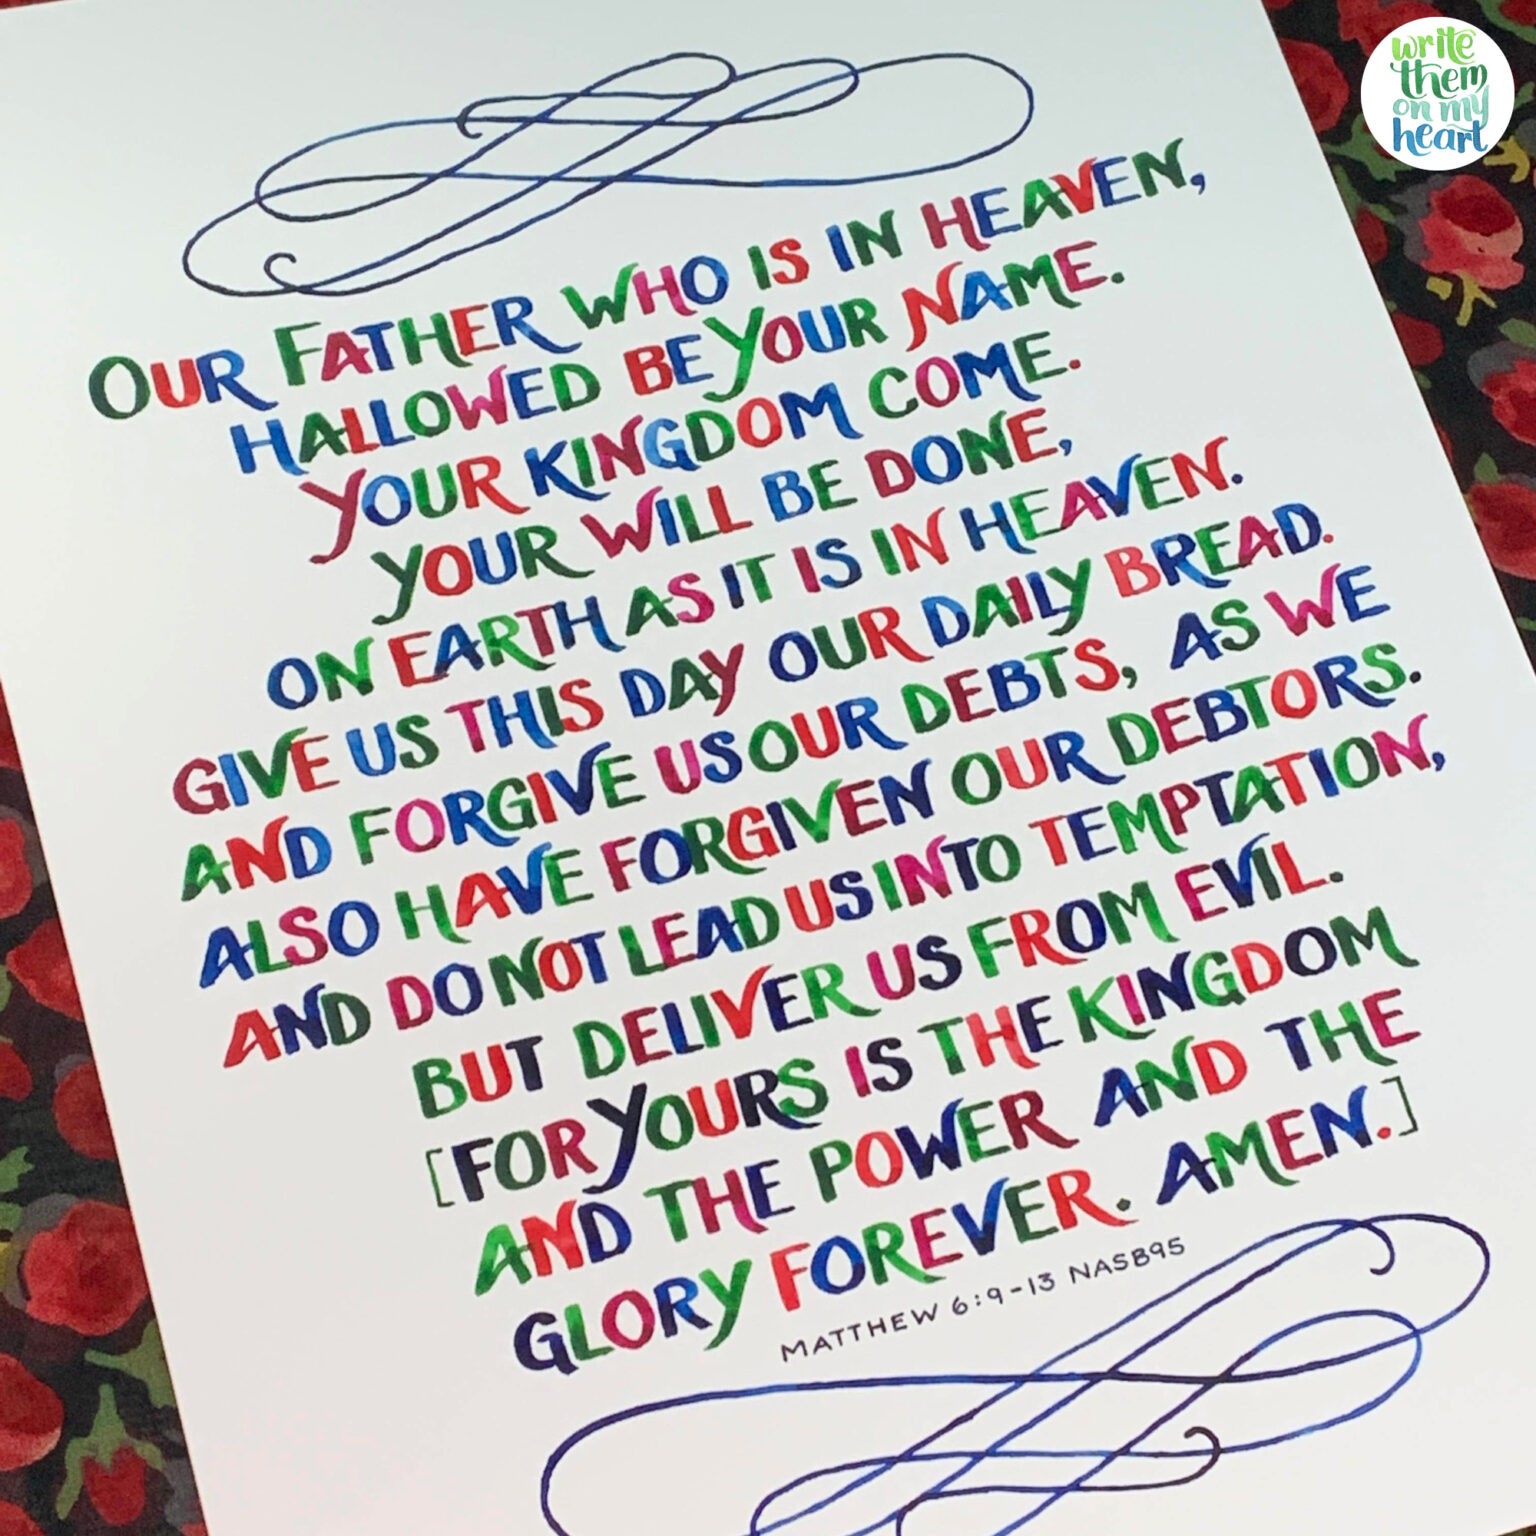 write
them
on my
heart
OUR FATHER WHO IS IN HEAVEN,
HALLOWED BE YOUR NAME.
YOUR KINGDOM COME.
YOUR WILL BE DONE,
ON EARTH AS IT IS IN HEAVEN.
GIVE US THIS DAY OUR DAILY BREAD.
AND FORGIVE US OUR DEBTS, AS WE
ALSO HAVE FORGIVEN OUR DEBTORS.
AND DO NOT LEAD US INTO TEMPTATION,
BUT DELIVER US FROM EVIL.
[FOR YOURS IS THE KINGDOM
AND THE POWER AND THE
GLORY FOREVER. AMEN.]
MATTHEW 6:9-13 NASB95